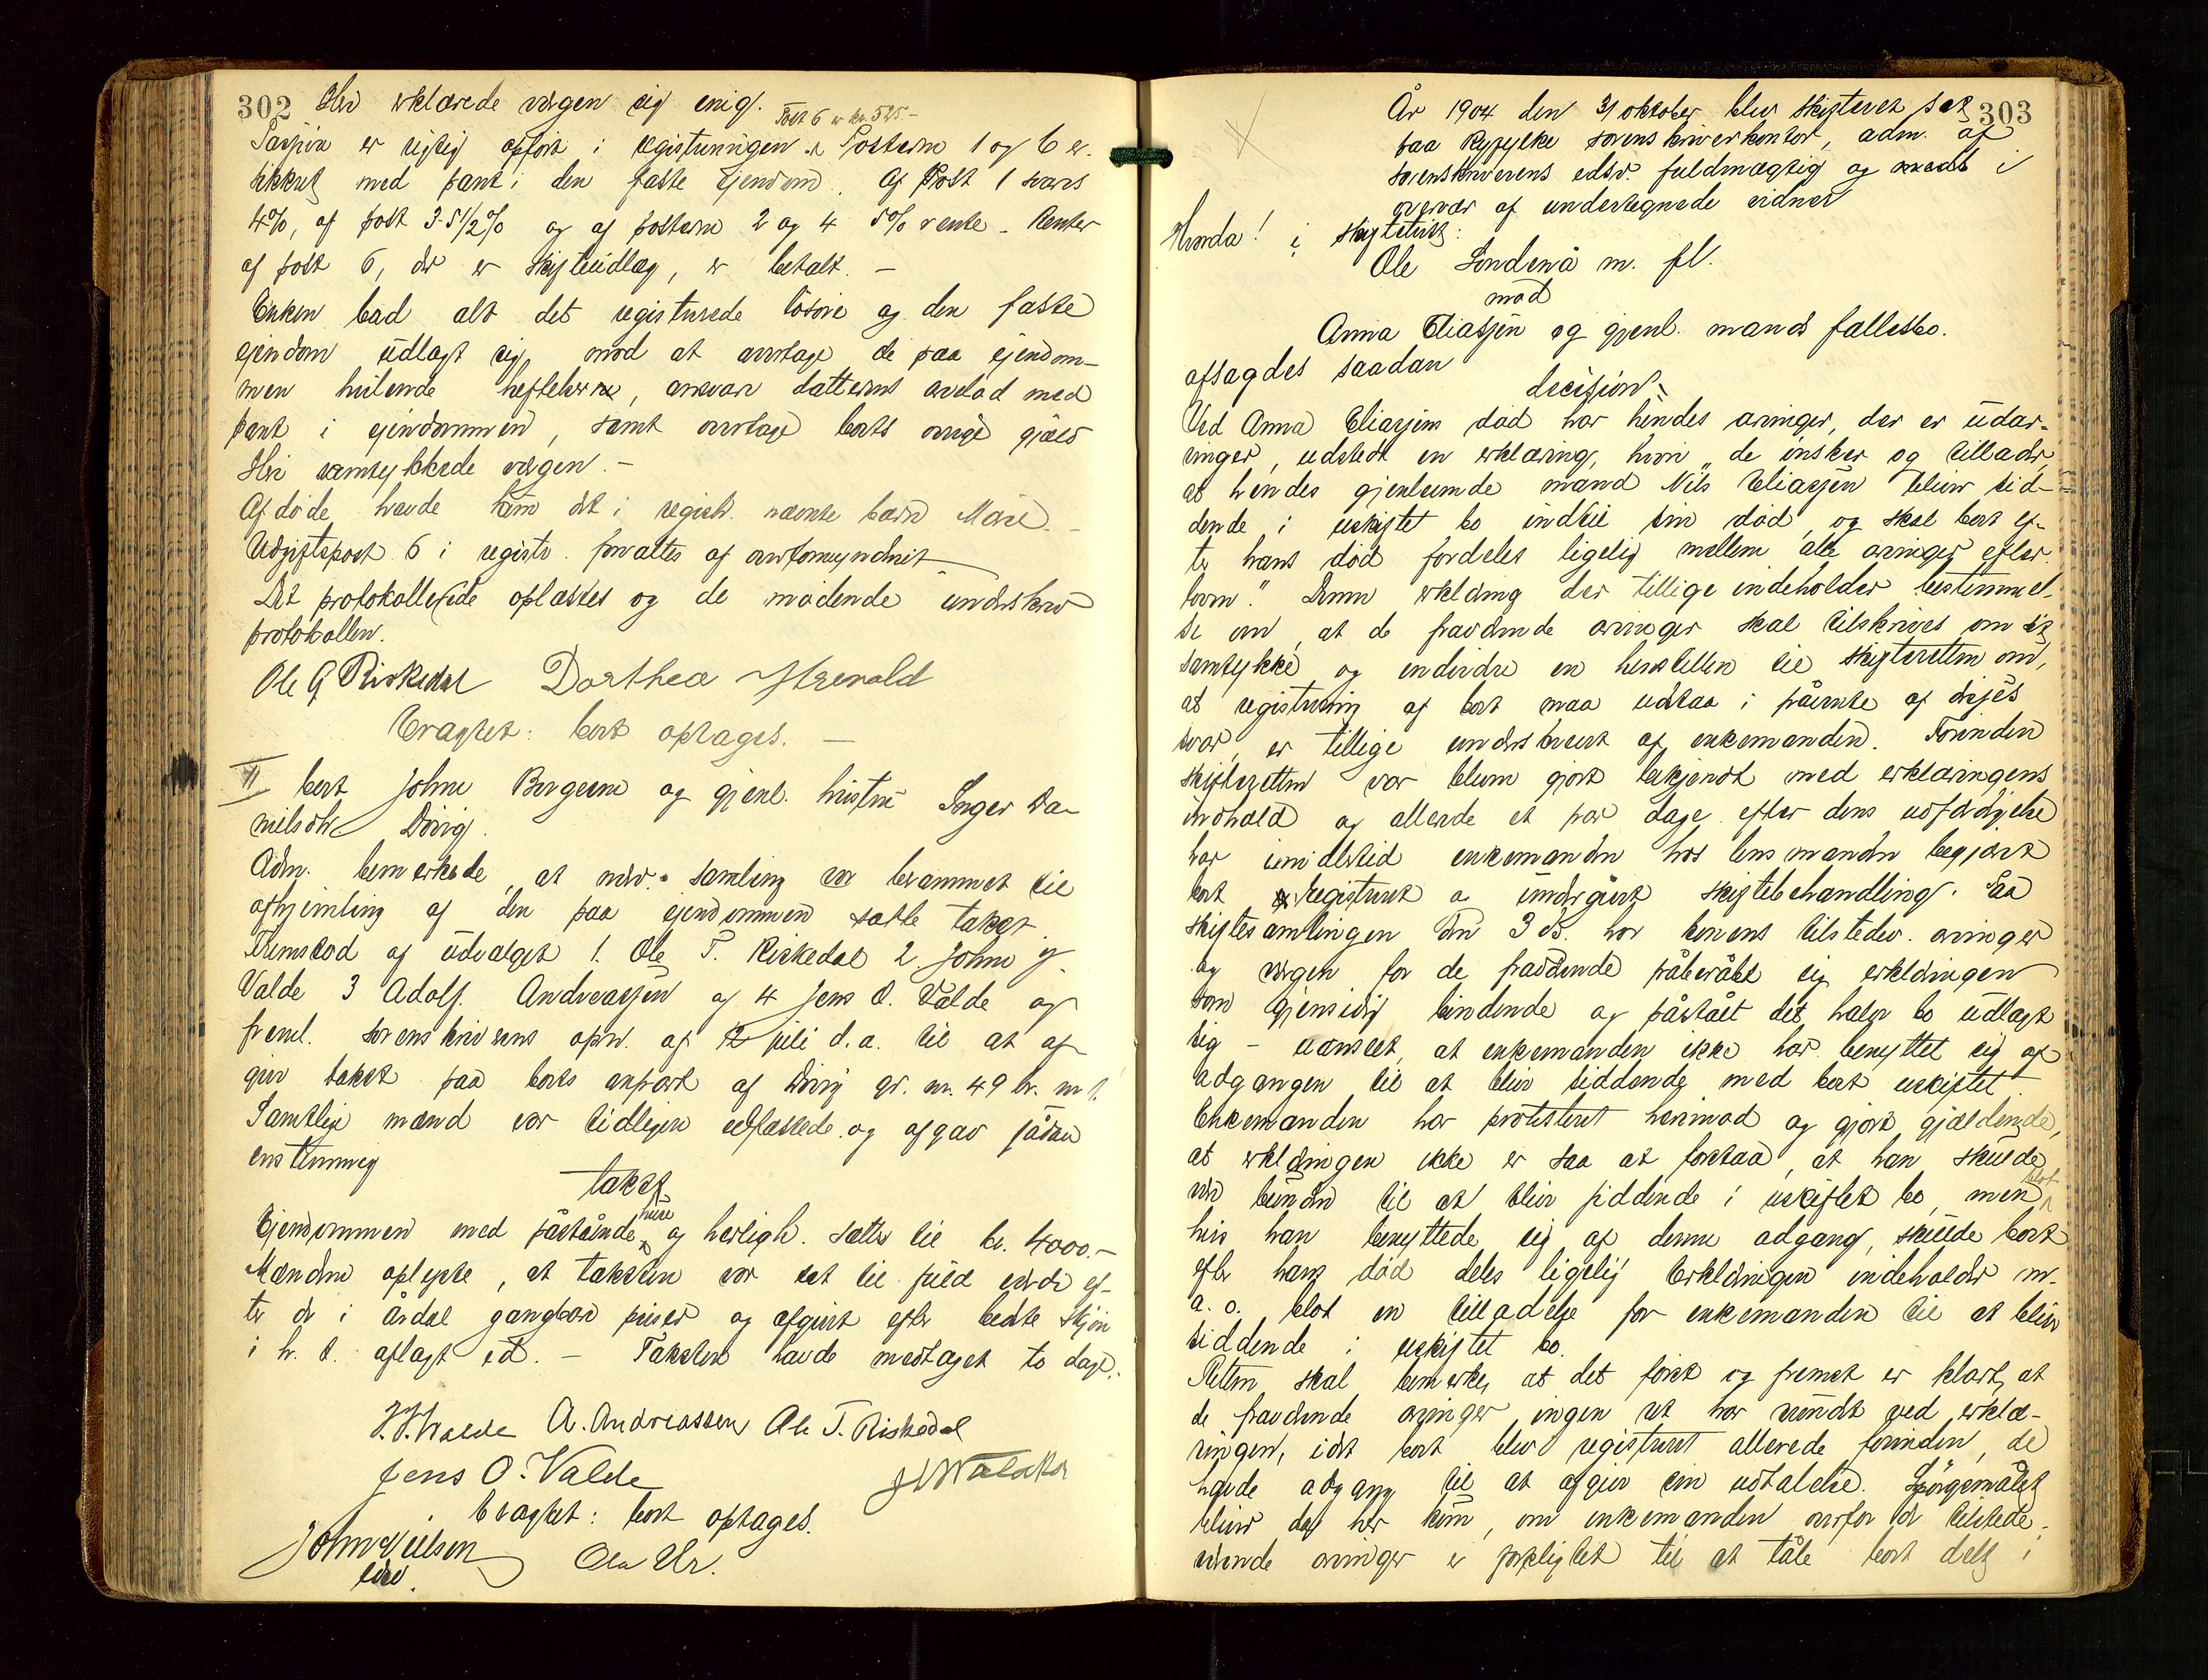 302 Heri erklærede værgen sig enig.
Post 6 er kr. 525.-
Passiva er rigtig opført i registreringen. Posterne 1 og 6 er
sikkret med pant i den faste eiendom. Af Post 1 svares
4%, af post 3 5 1/2% og af posterne 2 og 4 5% rente. Renter
af post 6, der er skifteudlæg, er betalt. –
Enken bad alt det registrerede løsøre og den faste
ejendom udlagt sig, mod at overtage de paa ejendom-
men hvilende heftelser, ansvare datterens arvelod med
pant i ejendommen, samt overtage boets øvrige gjæld
Heri samtykkede værgen. –
Afdøde havde kun det i registr. nævnte barn Marie. –
Udgiftspost 6 i registr. forvaltes af overformynderiet
Det protokollerede oplæstes og de mødende underskrev
protokollen.
Ole G Riskedal Dorthea
Eragtet: boet optages. –
II boet Johne Børgesen og gjenl. hustru Inger Da-
nielsdtr Dørig.
Adm. bemerkede, at nærv. samling var berammet til
afhjemling af den paa ejendommen satte takst.
Fremstod af udvalget 1. Ole T. Riskedal 2 Johne J.
Valde 3 Adolf Andreassen og 4 Jens O. Valde og
freml. sorenskriverens opn. af 12 juli d.a. til at af-
give takst paa boets anpart af Dørig gr. nr. 49 br. nr 1.
Samtlige mænd var tidligere edfæstede og afgav sådan
enstemmig
takst
Ejendommen med påstående huse og herligh. sættes til kr. 4000.–
Mændene oplyste, at taksten var sat til fuld værdi ef-
ter de i Årdal gangbare priser og afgivet efter bedste skjøn
i h. t. aflagt ed. – Taksten havde medtaget to dage.
J. J. Valde A. Andreassen Ole T. Riskedal
Jens O. Valde
Eragtet: boet optages.
John Nilsen Ola Ur.
303
År 1904 den 31 oktober blev skifteret sat
paa Ryfylke sorenskriverkontor, adm. af
sorenskriverens edsv. fuldmægtig og i
overvær af undertegnede vidner
Hvorda! i skiftetvist:
Ole Søndenå m. fl.
mod
Anna Eliassen og gjenl. mands fællesbo.
afsagdes saadan
decision:
Ved Anna Eliassens død har hendes arvinger, der er udar-
vinger, udstedt en erklæring, hvori „de ønsker og tillader,
at hendes gjenlevende mand Nils Eliassen bliver sid-
dende i uskiftet bo indtil sin død, og skal boet ef-
ter hans død fordeles ligelig mellem alle arvinger efter
loven." Denne erklæring der tillige indeholder bestemmel-
se om, at de fraværende arvinger skal tilskrives om sit
samtykke og endvidere en henstillen til skifteretten om,
at registrering af boet maa udstaa i påvente af disses
svar, er tillige underskrevet af enkemanden. Forinden
skifteretten var bleven gjort bekjendt med erklæringens
indhold og allerede et par dage efter dens udfærdigelse
har imidlertid enkemanden hos lensmanden begjært
boet registreret og undergivet skiftebehandling. Paa
skiftesamlingen den 3 ds. har konens tilstedev. arvinger
og værgen for de fraværende påberåbt sig erklæringen
som gjensidig bindende og påstået det halve bo udlagt
sig – uanseet, at enkemanden ikke har benyttet sig af
adgangen til at blive siddende med boet uskiftet.
Enkemanden har protesteret herimod og gjort gjældende,
at erklæringen ikke er saa at forstaa, at han skulde
være bunden til at blive siddende i uskiftet bo, men blot
hvis han benyttede sig af denne adgang, skulde boet
efter hans død deles ligelig. Erklæringen indeholder m.
a. o. blot en tilladelse for enkemanden til at blive
siddende i uskiftet bo.
Retten skal bemerke, at det først og fremst er klart, at
de fraværende arvinger ingen ret har vundet ved erklæ-
ringen, idet boet blev registreret allerede forinden, de
havde adgang til at afgive sin udtalelse. Spørgsmålet
bliver da her kun, om enkemanden overfor de tilstede-
værende arvinger er forpligtet til at tåle boet delt i